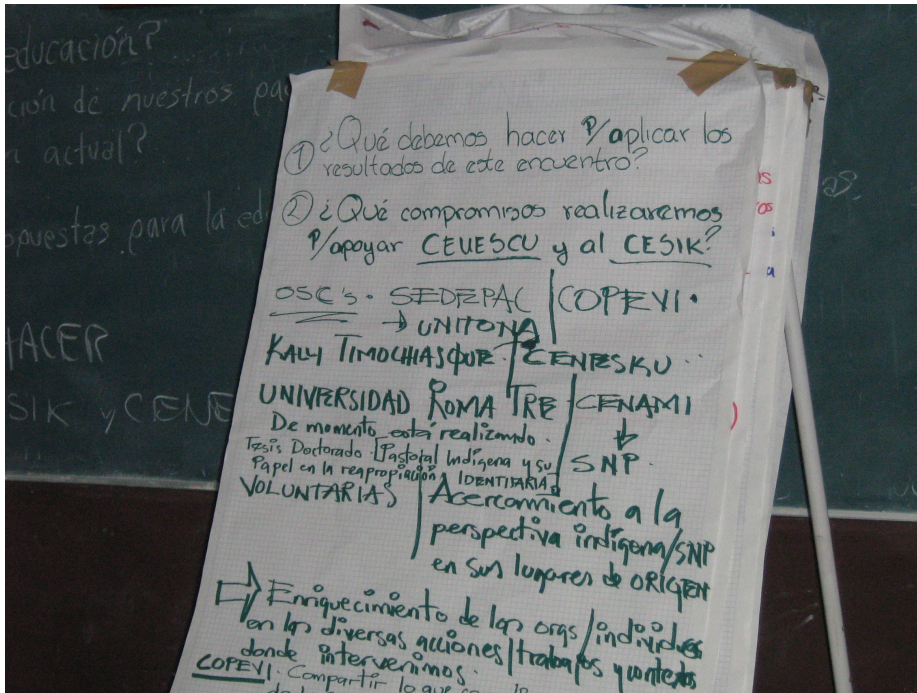 educación?
ción de nuestros pa
actual?
opuestas para la ed
HACER
SIK y CENE
① ¿Qué debemos hacer P/aplicar los
resultados de este encuentro?
② ¿Qué compromisos realizaremos
P/apoyar CEUESCU y al CESIK?
OSC's. SEDEPAC | COPEVI.
→ UNITONA
KALLI TIMOCHIASQUE. | CENESKU
UNIVERSIDAD ROMA TRE | CENAMI
De momento está realizando.
↓
SNP.
Tesis Doctorado Pastoral Indígena y su
Papel en la reapropiación IDENTITARIA
VOLUNTARIAS | Acercamiento a la
perspectiva indígena/SNP
en sus lugares de ORIGEN
⇨ Enriquecimiento de las orgs/individuos
en las diversas acciones/trabajos y contextos
donde intervenimos.
COPEVI. Compartir lo que
as
os
as